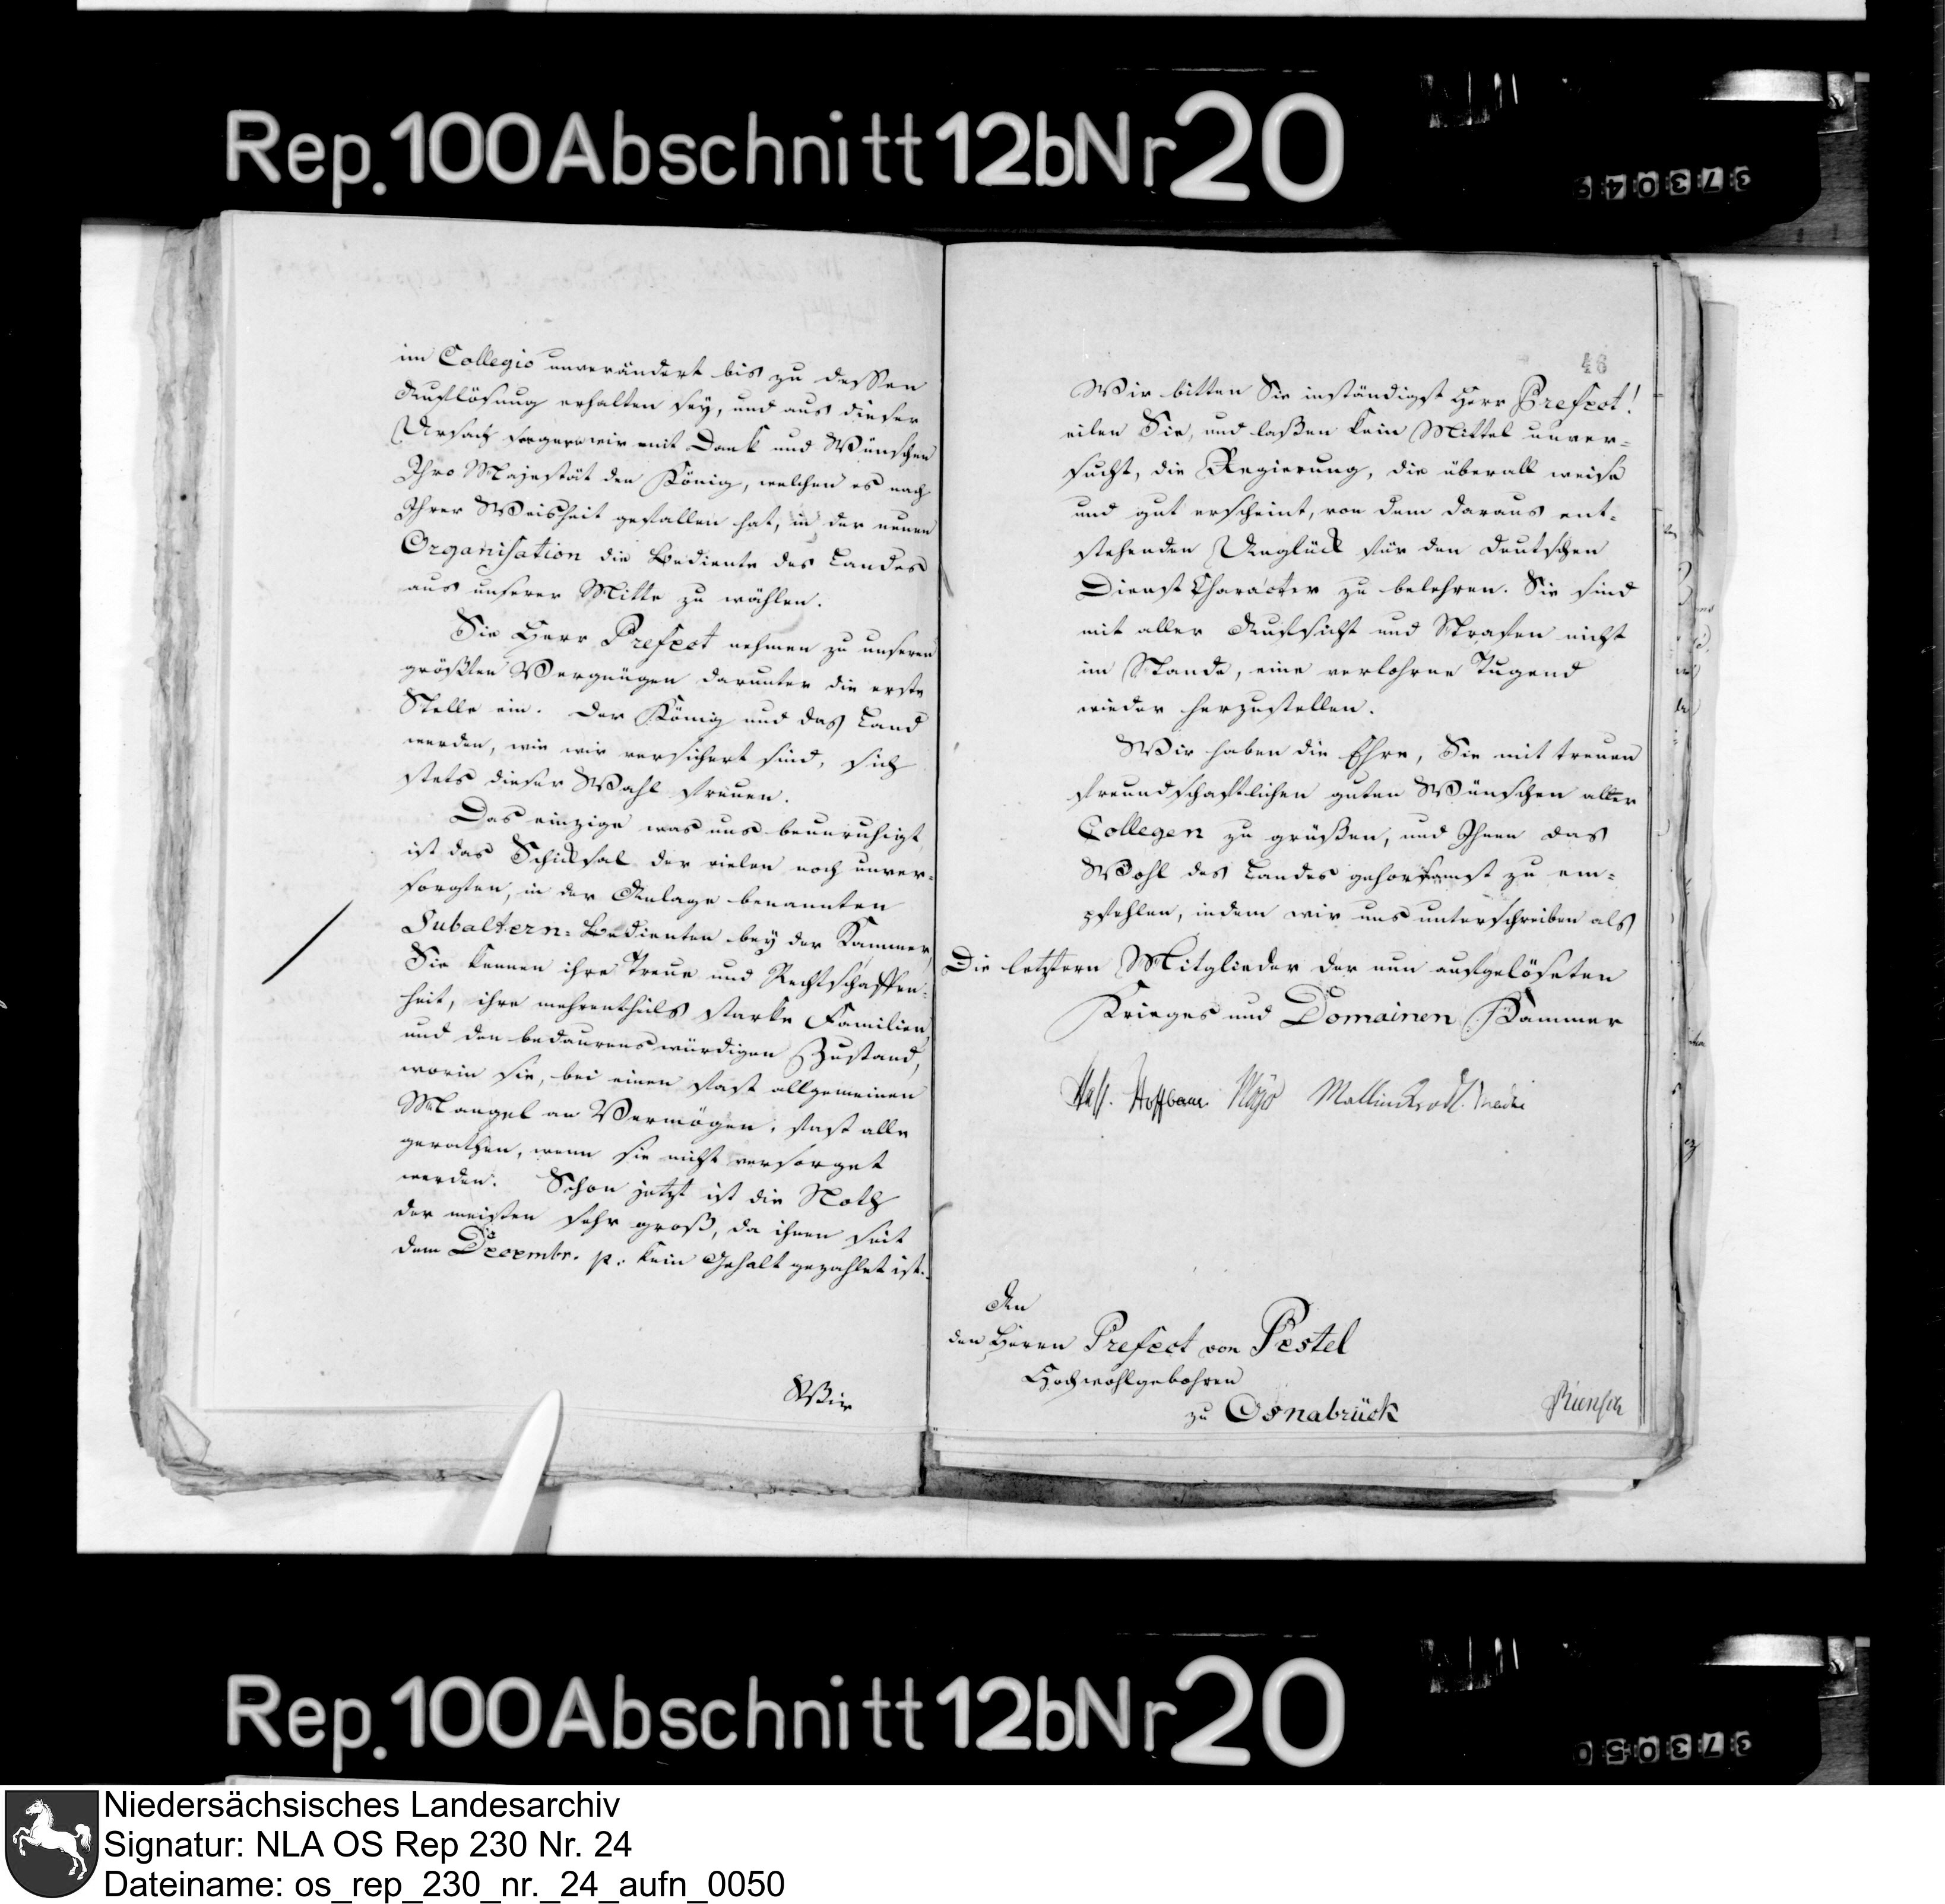 Rep. 100 Abschnitt 12b Nr 20
373049
im Collegio unverändert bis zu dessen
Auflösung erhalten sey, und aus dieser
Ursach segnen wir mit Dank und Wünschen
Ihro Majestät den König, welchen es nach
Ihrer Weisheit gefallen hat, in der neuen
Organisation die Bediente des Landes
aus unserer Mitte zu wählen.
Sie Herr Prefect nehmen zu unseren
größten Vergnügen darunter die erste
Stelle ein. Der König und das Land
werden, wie wir versichert sind, sich
stets dieser Wahl freuen.
Das einzige was uns beunruhigt
ist das Schicksal der vielen noch unver-
sorgten, in der Anlage benannten
Subaltern-Bedienten bey der Kammer,
Sie kennen ihre Treue und Rechtschaffen-
heit, ihre mehrentheils starke Familien,
und den bedaurenswürdigen Zustand,
worin sie, bei einen fast allgemeinen
Mangel an Vermögen, fast alle
gerathen, wenn sie nicht versorget
werden. Schon jetzt ist die Noth
der meisten sehr groß, da ihnen seit
dem Decembr. p. kein Gehalt gezahlet ist.
Wir
46
Wir bitten Sie inständigst Herr Prefect!
eilen Sie, und laßen kein Mittel unver-
sucht, die Regierung, die überall weise
und gut erscheint, von dem daraus ent-
stehenden Unglück für den deutschen
Dienst Character zu belehren. Sie sind
mit aller Aufsicht und Strafen nicht
im Stande, eine verlohrne Tugend
wieder herzustellen.
Wir haben die Ehre, Sie mit treuen
freundschaftlichen guten Wünschen aller
Collegen zu grüßen, und Ihnen das
Wohl des Landes gehorsamst zu em-
pfehlen, indem wir uns unterschreiben als
Die letztern Mitglieder der nun aufgelöseten
Krieges und Domainen Kammer
Haß. Hoffbauer Mallinckrodt.
An
den Herrn Prefect von Pestel
Hochwohlgebohren
zu Osnabrück
Rep. 100 Abschnitt 12b Nr 20
373050
Niedersächsisches Landesarchiv
Signatur: NLA OS Rep 230 Nr. 24
Dateiname: os_rep_230_nr._24_aufn_0050